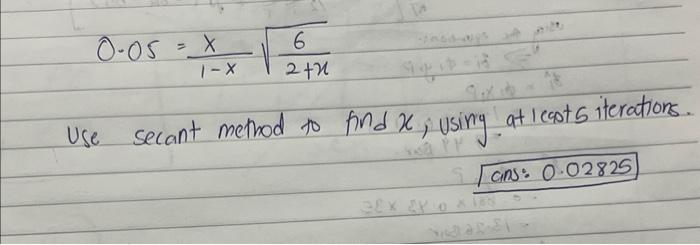 0.05 = x/(1-x) √(6/(2+x))
Use secant method to find x, using at least 5 iterations.
ans: 0.02825